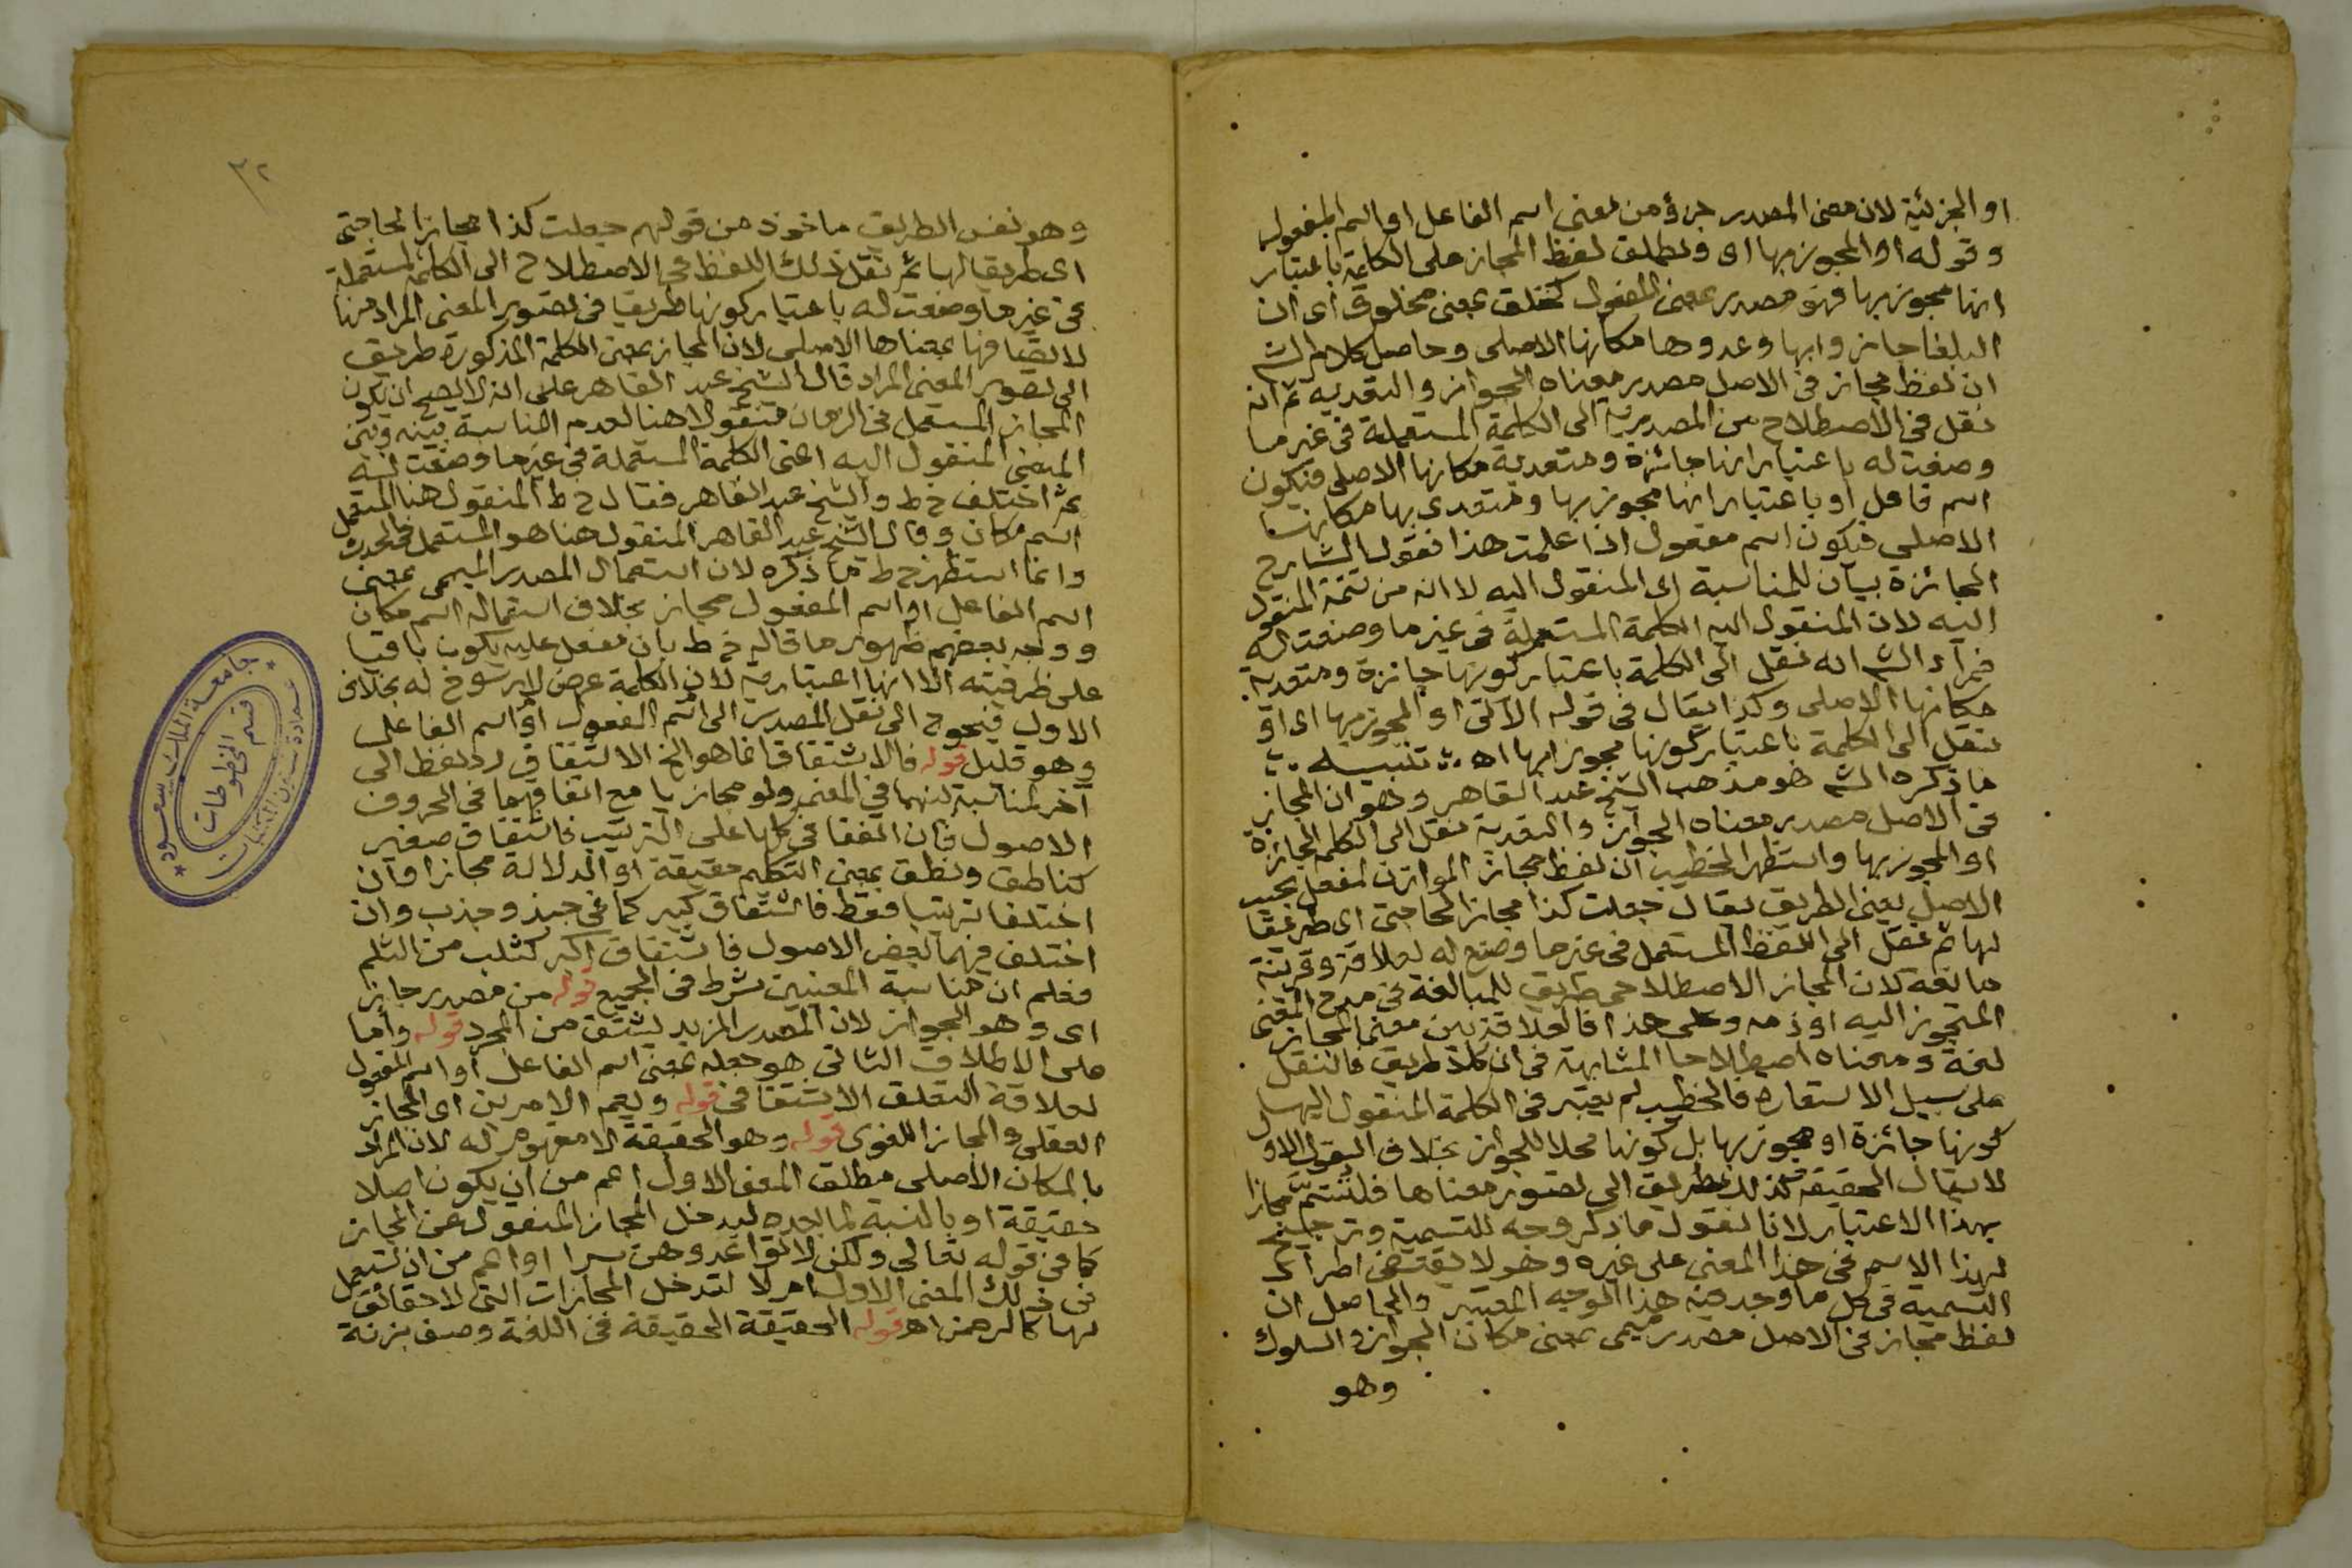 او الجزئية لان معنى المصدر جزؤ من معنى اسم الفاعل او اسم المفعول
وقوله او المجوز بها اى ويطلق لفظ المجاز على الكلمة باعتبار
انها مجوز بها فهو مصدر بمعنى المفعول كخلق بمعنى مخلوق اى ان
البلغا جازوا بها وعدوها مكانها الاصلى وحاصل كلام الش
ان لفظ مجاز فى الاصل مصدر معناه الجواز والتعديه ثم انه
نقل فى الاصطلاح من المصدرية الى الكلمة المستعملة فى غير ما
وضعت له باعتبار انها جائزة ومتعدية مكانها الاصلى فتكون
اسم فاعل او باعتبار انها مجوز بها ومتعدى بها مكانها
الاصلى فيكون اسم مفعول اذا علمت هذا فقول الشارح
الجائزة بيان للمناسبة اى المنقول اليه لا انه من تتمة المنقول
اليه لان المنقول اليه الكلمة المستعملة فى غير ما وضعت له
فمراد الش انه نقل الى الكلمة باعتبار كونها جائزة ومتعدية
مكانها الاصلى وكذا يقال فى قوله الآتى او المجوز بها اى او
نقل الى الكلمة باعتبار كونها مجوزا بها اه تنبيه
ما ذكره الش هو مذهب الشيخ عبد القاهر وهو ان المجاز
فى الاصل مصدر معناه الجواز والتعدية نقل الى الكلمة الجائزة
او المجوز بها واستظهر الخطيب ان لفظ مجاز الموازن لمفعل بحسب
الاصل بمعنى الطريق يقال جعلت كذا مجازا لحاجتى اى طريقا
لها ثم نقل الى اللفظ المستعمل فى غير ما وضع له لعلاقة وقرينة
مانعة لان المجاز الاصطلاحى طريق للمبالغة فى مدح المعنى
المتجوز اليه او ذمه وعلى هذا فالعلاقة بين معنى المجاز
لغة ومعناه اصطلاحا المشابهة فى ان كلا طريق فالنقل
على سبيل الاستعاره فالخطيب لم يعتبر فى الكلمة المنقول اليها
كونها جائزة او مجوز بها بل كونها محلا للجواز بخلاف القول الاول
لا يقال الحقيقة كذلك طريق الى تصور معناها فلتسم مجازا
بهذا الاعتبار لانا نقول ما ذكر وجه للتسمية وترجيح
لهذا الاسم فى هذا المعنى على غيره وهو لا يقتضى اطراد
التسمية فى كل ما وجد فيه هذا الوجه المعتبر والحاصل ان
لفظ مجاز فى الاصل مصدر ميمى بمعنى مكان الجواز والسلوك
وهو
٣٢
وهو نفس الطريق ماخوذ من قولهم جعلت كذا مجازا لحاجتى
اى طريقا لها ثم نقل ذلك اللفظ فى الاصطلاح الى الكلمة المستعملة
فى غير ما وضعت له باعتبار كونها طريقا فى تصوير المعنى المراد منها
لاتصافها بمعناها الاصلى لان المجاز بمعنى الكلمة المذكورة طريق
الى تصوير المعنى المراد قال الشيخ عبد القاهر على انه لا يصح ان يكون
المجاز المستعمل فى الزمان منقولا هنا لعدم المناسبة بينه وبين
المعنى المنقول اليه اعنى الكلمة المستعملة فى غير ما وضعت له
ثم اختلف خ ط والشيخ عبد القاهر فقال خ ط المنقول هنا المستعمل
اسم مكان وقال الشيخ عبد القاهر المنقول هنا هو المستعمل فى الحدث
وانما استظهر خ ط ما ذكره لان استعمال المصدر الميمى بمعنى
اسم الفاعل او اسم المفعول مجاز بخلاف استعماله اسم مكان
ووجه بعضهم ظهور ما قاله خ ط بان مفعل عليه يكون باقيا
على ظرفيته الا انها اعتبارية لان الكلمة عرض لا رسوخ له بخلاف
الاول فيحوج الى نقل المصدر الى اسم المفعول او اسم الفاعل
وهو قليل قوله فالاشتقاق انما هو الخ الاشتقاق رد لفظ الى
آخر لمناسبة بينهما فى المعنى ولو مجازيا مع اتفاقهما فى الحروف
الاصول فان اتفقا فى كلها على الترتيب فاشتقاق صغير
كناطق ونطق بمعنى التكلم حقيقة او الدلالة مجازا وان
اختلفا ترتيبا فقط فاشتقاق كبير كما فى جبذ وجذب وان
اختلف فيهما بعض الاصول فاشتقاق اكبر كثلب من الثلم
فعلم ان مناسبة المعنيين شرط فى الجميع قوله من مصدر جاز
اى وهو الجواز لان المصدر المزيد يشتق من المجرد قوله واما
على الاطلاق الثانى هو جعله بمعنى اسم الفاعل او اسم المفعول
لعلاقة التعلق الاشتقاقى قوله ويعم الامرين اى المجاز
العقلى والمجاز اللغوى قوله وهو الحقيقة لا مفهوم له لان المراد
بالمكان الاصلى مطلق المعنى الاول اعم من ان يكون اصلا
حقيقة او بالنسبة لما بعده ليدخل المجاز المنقول عن المجاز
كما فى قوله تعالى ولكن لا تواعدوهن سرا او اعم من ان تستعمل
فى ذلك المعنى الاول ام لا لتدخل المجازات التى لا حقائق
لها كالرحمن اه قوله الحقيقة الحقيقة فى اللغة وصف بزنة
جامعة الملك سعود
عمادة شئون المكتبات
قسم المخطوطات